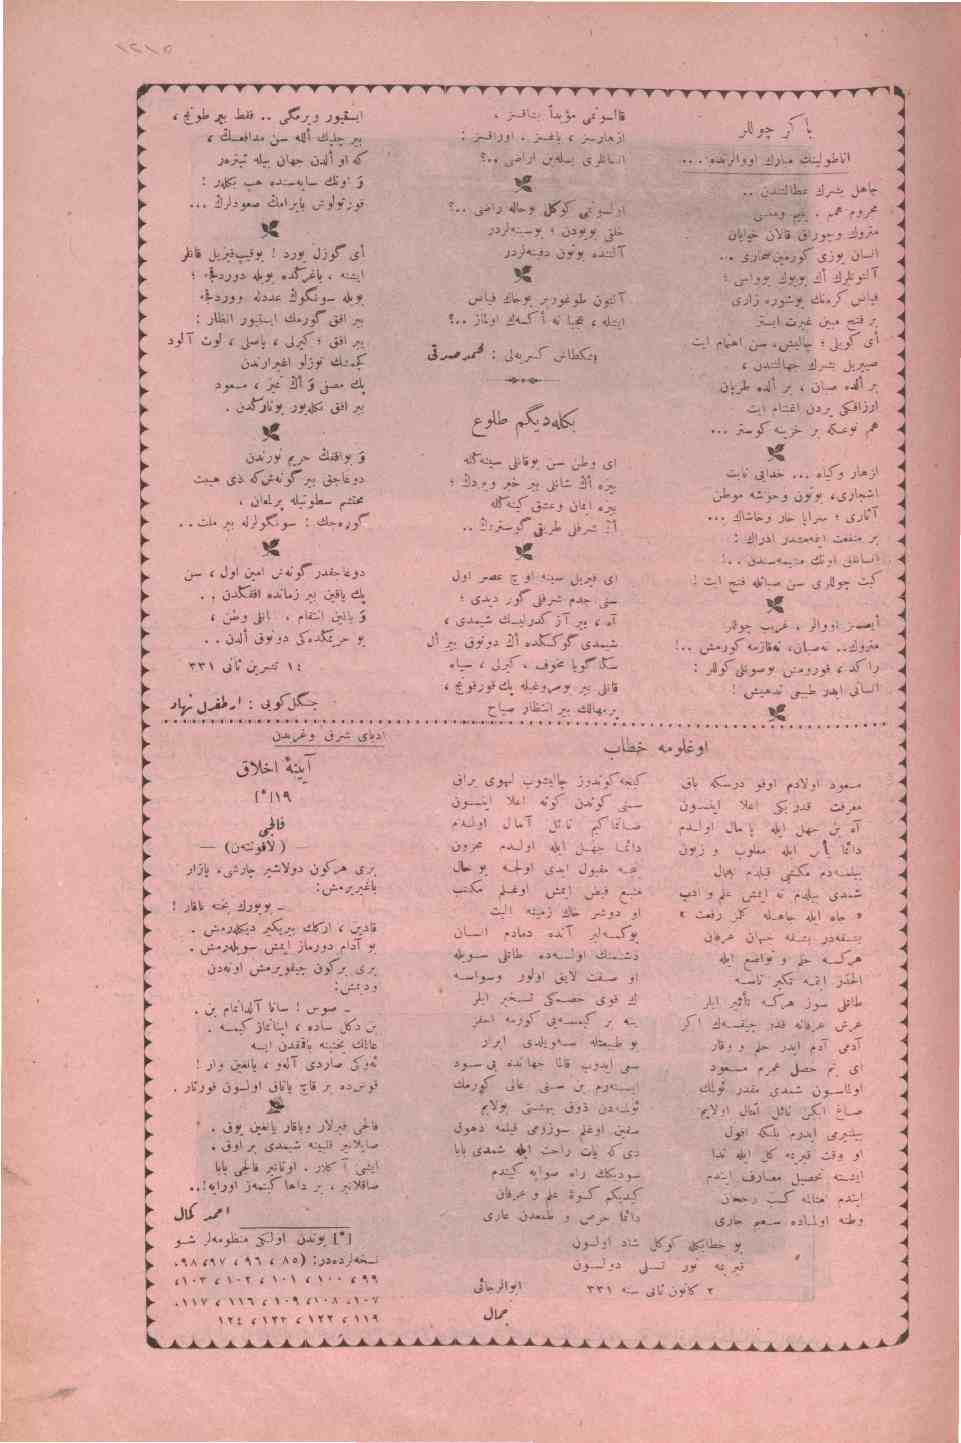 باكر چوللر
اناطولينك مبارك اووالرنده...
جاهل بشرك عطالتندن ..
محروم همم ، يتيم ومنسى
متروك وچوراق قالان خيابان
انسان يوزى كورمين صحارى ..
آلتونلرك اك بويوك يوواسى ؛
بر فتح مبين غيرت ايستر
أى كويلى ؛ چاليش، سن اهتمام ايت
صييريل بشرك جهالتندن ،
بر ألده صبان ، بر ألده طرپان
ارزاقكى يردن اغتنام ايت
هم نوعكه بر خزينه كوستر ...
ازهار وكياه ... خدايى نابت
اشجارى، بوتون وحوشه موطن
آثارى ؛ سراپا خار وخاشاك ...
بر منفعت ايده‌مشدر ادراك :
كيت چوللرى سن صبانله فتح ايت !
ايصسز اووالر ، غريب چوللر
متروك.. نه صبان، نه قازمه كورمش ..!
راكد ، قورومش بوسونلى كوللر :
انسانى ايدر طبيعى تدهيش !
قالسونمى مؤبداً بتاقسز ،
ازهارسز ، باغسز . اوراقسز :
انسانلرى بسله‌ين اراضى ..؟
اولسونمى كوكل بو حاله راضى ..؟
خلق بويودن ؛ بوسينه‌لردر
آلتنده بوتون دفينه‌لردر
آلتون طوغورير بوخاك فياض
ايشله ، عجبا نه أكسه‌ك اولماز ..؟
بكطاش كسريه‌لى : محمد صدقى
بكله‌ديگم طلوع
اى وطن سن بوقانلى سينه‌كله
بيزه أڭ شانلى بير خبر ويردڭ ؛
بيزه ايمان وعشق كينه‌كله
أڭ شرفلى طريقى گوستردڭ ..
اى قيريل سينه اوچ عصر اول
سنى جدم شرفلى گور ديدى ؛
آه ، بير آز كدرليسڭ شيمدى ،
شيمدى گوكسڭده أڭ دونوق بير أل
سكا گويا مخوف ، كيرلى ، سياه
قانلى بير بوس وعيله پك قورقونج ،
پرمهالك بير انتظار صباح
ايستيور ويرمگى .. فقط بير طونج ،
بير چليك ألله سن مدافعسڭ ،
كه او ألدن جهان بيله تيتره‌ر
و اونك سايه‌سنده هپ بكلر :
قورتولوش بايرامڭ صعودلرڭ ...
أى گوزل يورد ! بوقيپ‌قيزيل قانلر
ايشته ، باغرڭده بويله دوردقجه ؛
بويله سونگوڭ عدديله ووردقجه
بير افق گورمك ايستيور انظار :
بير افق ؛ كيرلى ، پاسلى ، لوث آلود
كيجه‌نك توزلو اغبرارندن
پك مصفى و أڭ تميز ، مسعود
بير افق بكله‌يور بونارڭدن .
و بو افقڭ حريم نورندن
دوغاجق بير گونه‌ش كه ذى هيبت
محتشم سطوتيله پرله‌ان ،
گوره‌جك : سونگولرله بير ملت ..
دوغاجقدر گونه‌ش امين اول ، سن
پك ياقين بير زمانده افقڭدن ..
و يالڭز انتقام . انلى وطن ،
بو حريمڭده‌كى دونوق ألدن ..
١٤ تشرين ثانى ٣٣١
چنگل كويى : ارطغرل نهاد
اوغلومه خطاب
مسعود اولادم اوقو درسكه باق
معرفت قدريكى اعلا ايتسون
آه بن جهل ايله پامال اولدم
دائما يأس ايله مغلوب و زبون
بيلمه‌دم مكتبى قيلدم اهمال
شمدى بيلدم نه ايمش علم و ادب
« جاه ايله جاهله كلمز رفعت »
بتسه‌در بتسه جهان عرفان
هركسه حلم و تواضع ايله
الحذر ايتمه تكبر ناسه
طاتلى سوز هركسه تأثير ايلر
عرش عرفانه قدر چيقسه‌ك اكر
آدمى آدم ايدر حلم و وقار
اى بنم حصل عمرم مسعود
اولماسون شمدى مقدر ئولمك
صاغ ايكن نائل آمال اولايم
بيلنيرمى ايدرم بلكه افول
او وقت قبرمه كل ايله ندا
ايشته تحصيل معارف ايتدم
ايتدم امثالمه كسب رجحان
وطنه اولماده سعيم جارى
كيجه كوندوز چاليشوب لهوى براق
سنى كوندن كونه اعلا ايتسون
صانماكيم نائل آمال اولدم
دائما جهل ايله اولدم محزون
نيجه مقبول ايدى اولجه بو حال
منبع فيض ايمش اوغلم مكتب
او دوشر خاك زمينه البت
يوكسه‌لير آنده دمادم انسان
دشمنك اولسه‌ده طاتلى سويله
او صفت لايق اولور وسواسه
ك قوى خصمكى تسخير ايلر
ينه بر كيمسه‌يى كورمه احقر
بو طبيعتله سه‌ويلدى ابرار
سعى ايدوب قالما جهانده بى سود
ايسته‌رم بن سنى عالى كورمك
ئولمه‌دن ذوق بهشتى بولايم
سفين اوغلم سوزومى قيلمه ذهول
دى كه يات راحت ايله شمدى بابا
سوديكك راه صوابه كيتدم
كيديكم كسوۀ علم و عرفان
دائما حرص و طمعدن عارى
بو خطابكله كوكل شاد اولسون
قبرمه نور تسلى دولسون
٢ كانون ثانى سنه ٣٣١
ابوالرجائى
جمال
ادباى شرق وغربدن
آيينۀ اخلاق
١٩[*]
فالجى
— (لافونته‌ن) —
برى هركون دولاشير چارشى، بازار
باغيريرمش:
ـ بويورك بخته باقار !
قادين ، اركك بيريكير ديكلرمش .
بو آدام دورماز ايمش سويلرمش.
برى بركون چيقويرمش اونه‌دن
وديمش:
ـ صوس ! سانا آلدانمام بن .
بن دكل ساده ، اينانماز كيمسه .
عالمك بختينه باقمقدن ايسه
ئه‌وكى صاردى آله‌و ، يانغين وار !
قوش ده بر قاچ ياتاق اولسون قورتار .
فالجى فيرلار وباقار يانغين يوق .
صاپلانير قلبينه شيمدى بر اوق .
ايشى آكلار . اوتانير فالجى بابا
صاقلانير ، بر داها كيتمه‌ز اورايه!..
احمد كمال
[*] بوندن اولكى منظومه‌لر شو
نسخه‌لرده‌در: (٨٥ ، ٩٦ ، ٩٧، ٩٨،
٩٩ ، ١٠٠ ، ١٠١ ، ١٠٢ ، ١٠٣،
١٠٧، ١٠٨، ١٠٩، ١١٦ ، ١١٧،
١١٩ ، ١٢٢ ، ١٢٣ ، ١٢٤